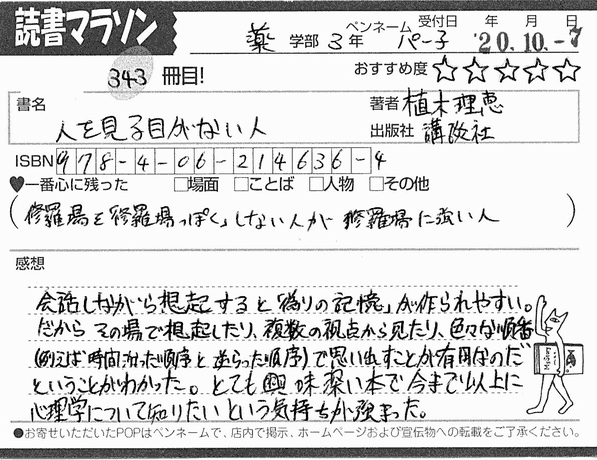 読書マラソン
薬 学部 3年 ペンネーム パー子 受付日 年 月 日 '20.10.-7
343 冊目!
おすすめ度 ☆☆☆☆☆
書名 人を見る目がない人
著者 植木理恵
出版社 講談社
ISBN 978-4-06-214636-4
♥一番心に残った □場面 □ことば □人物 □その他
(修羅場を「修羅場っぽく」しない人が修羅場に強い人)
感想
会話しながら想起すると「偽りの記憶」が作られやすい。
だから その場で想起したり、複数の視点から見たり、色々な順番
(例えば時間沿った順序と逆らった順序)で思い出すことが有用なのだ
ということがわかった。とても興味深い本で今まで以上に
心理学について知りたいという気持ちが強まった。
●お寄せいただいたPOPはペンネームで、店内で掲示、ホームページおよび宣伝物への転載をご了承ください。